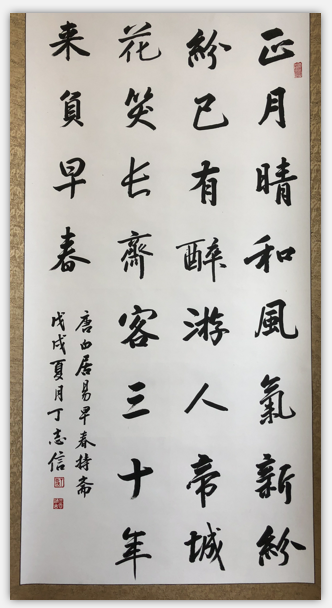 正月晴和風氣新紛
紛已有醉游人帝城
花笑长齋客三十年
来負早春
唐白居易早春持斋
戊戌夏月丁志信